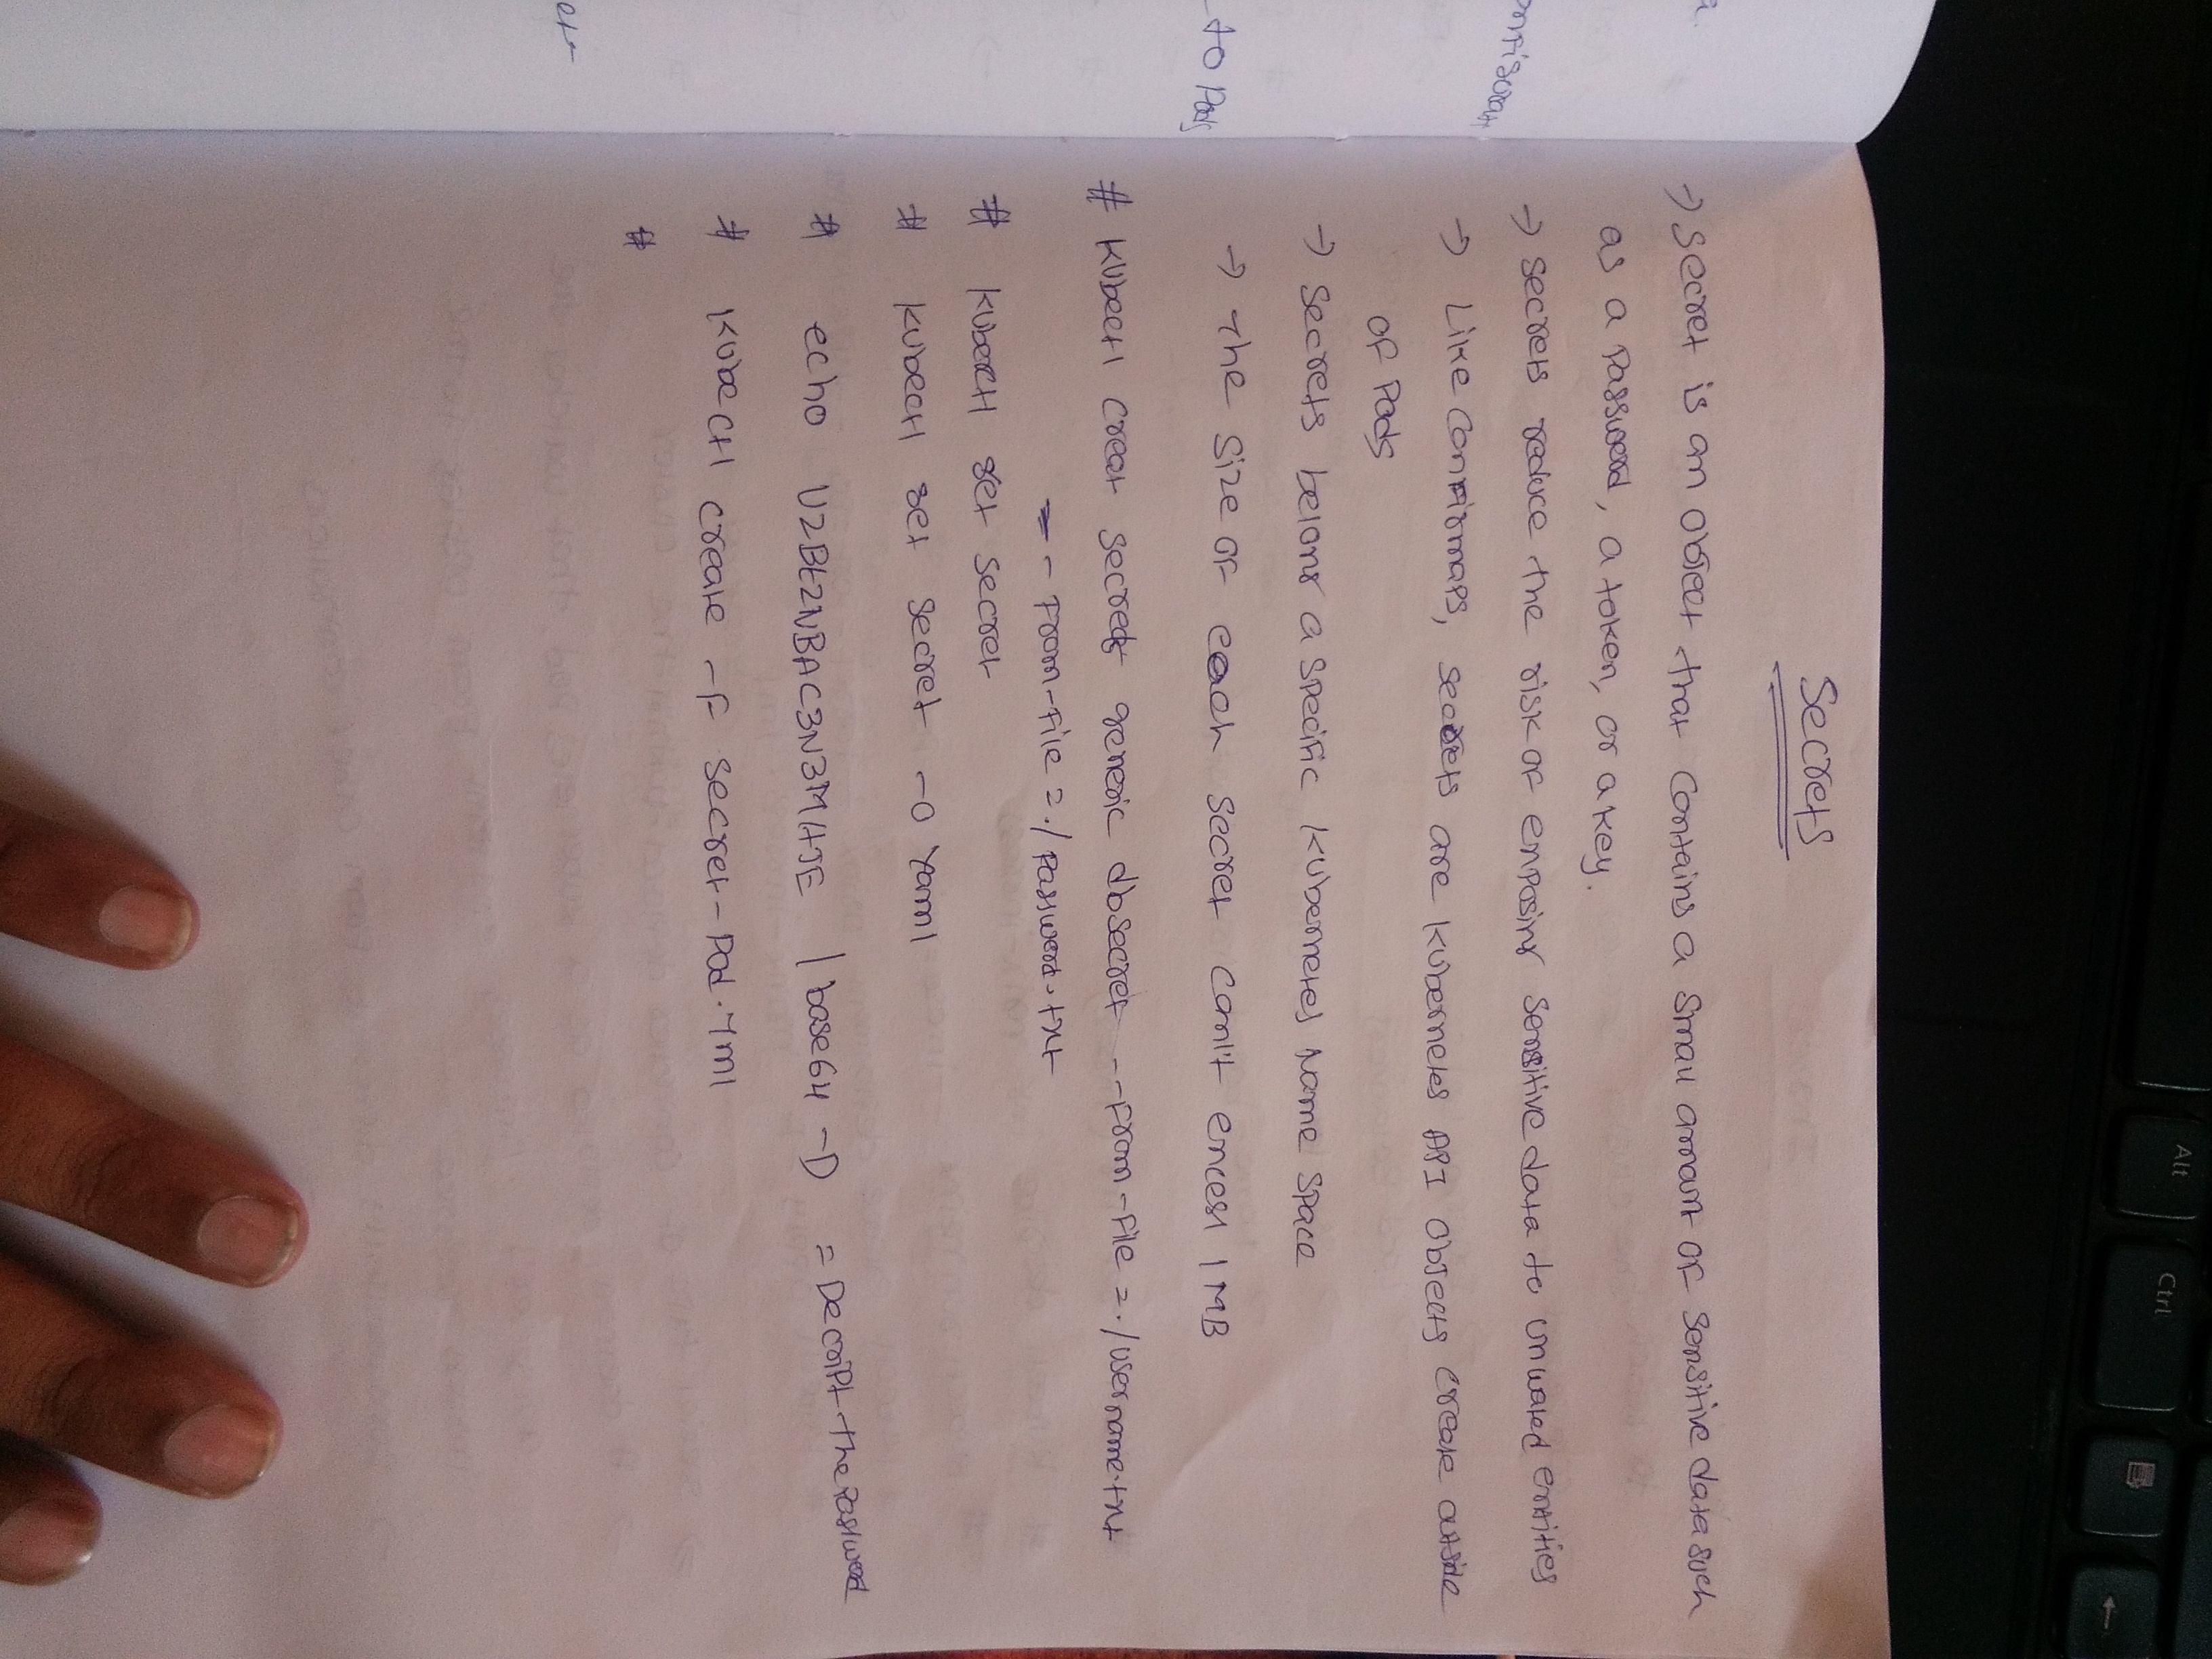 Alt
Ctrl
Secrets
→ Secret is an object that contains a small amount of sensitive data such
as a Password, a token, or a key.
→ secrets reduce the risk of enposing sensitive data to unwated entities
→ Like Configmaps, secrets are Kubernetes API Objects create outside
of Pods
→ Secrets belong a specific Kubernetes Name Space
→ The size of each secret can't 1 MB
# Kubectl creat secret generic dbsecret --from-file=./username.txt
-- from-file=./password.txt
# Kubectl get secret
# Kubectl get secret -o Yaml
# echo | base64 -D = Decript the Password
# Kubectl create -f secret-Pod.yml
#
to Pods